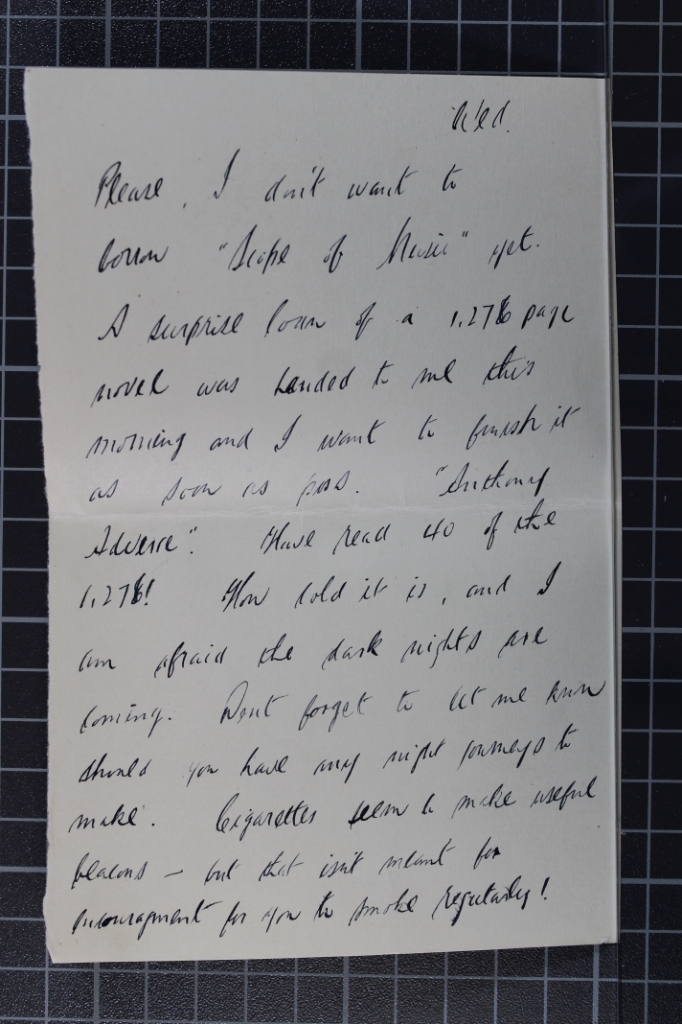 Wed.
Please, I don't want to
borrow "Scope of Music" yet.
A surprise loan of a 1,276 page
novel was handed to me this
morning and I want to finish it
as soon as poss. "Anthony
Adverse". Have read 40 of the
1,276! How cold it is, and I
am afraid the dark nights are
coming. Dont forget to let me know
should you have any night journeys to
make. Cigarettes seem to make useful
beacons – but that isn't meant for
encouragment for you to smoke regularly!